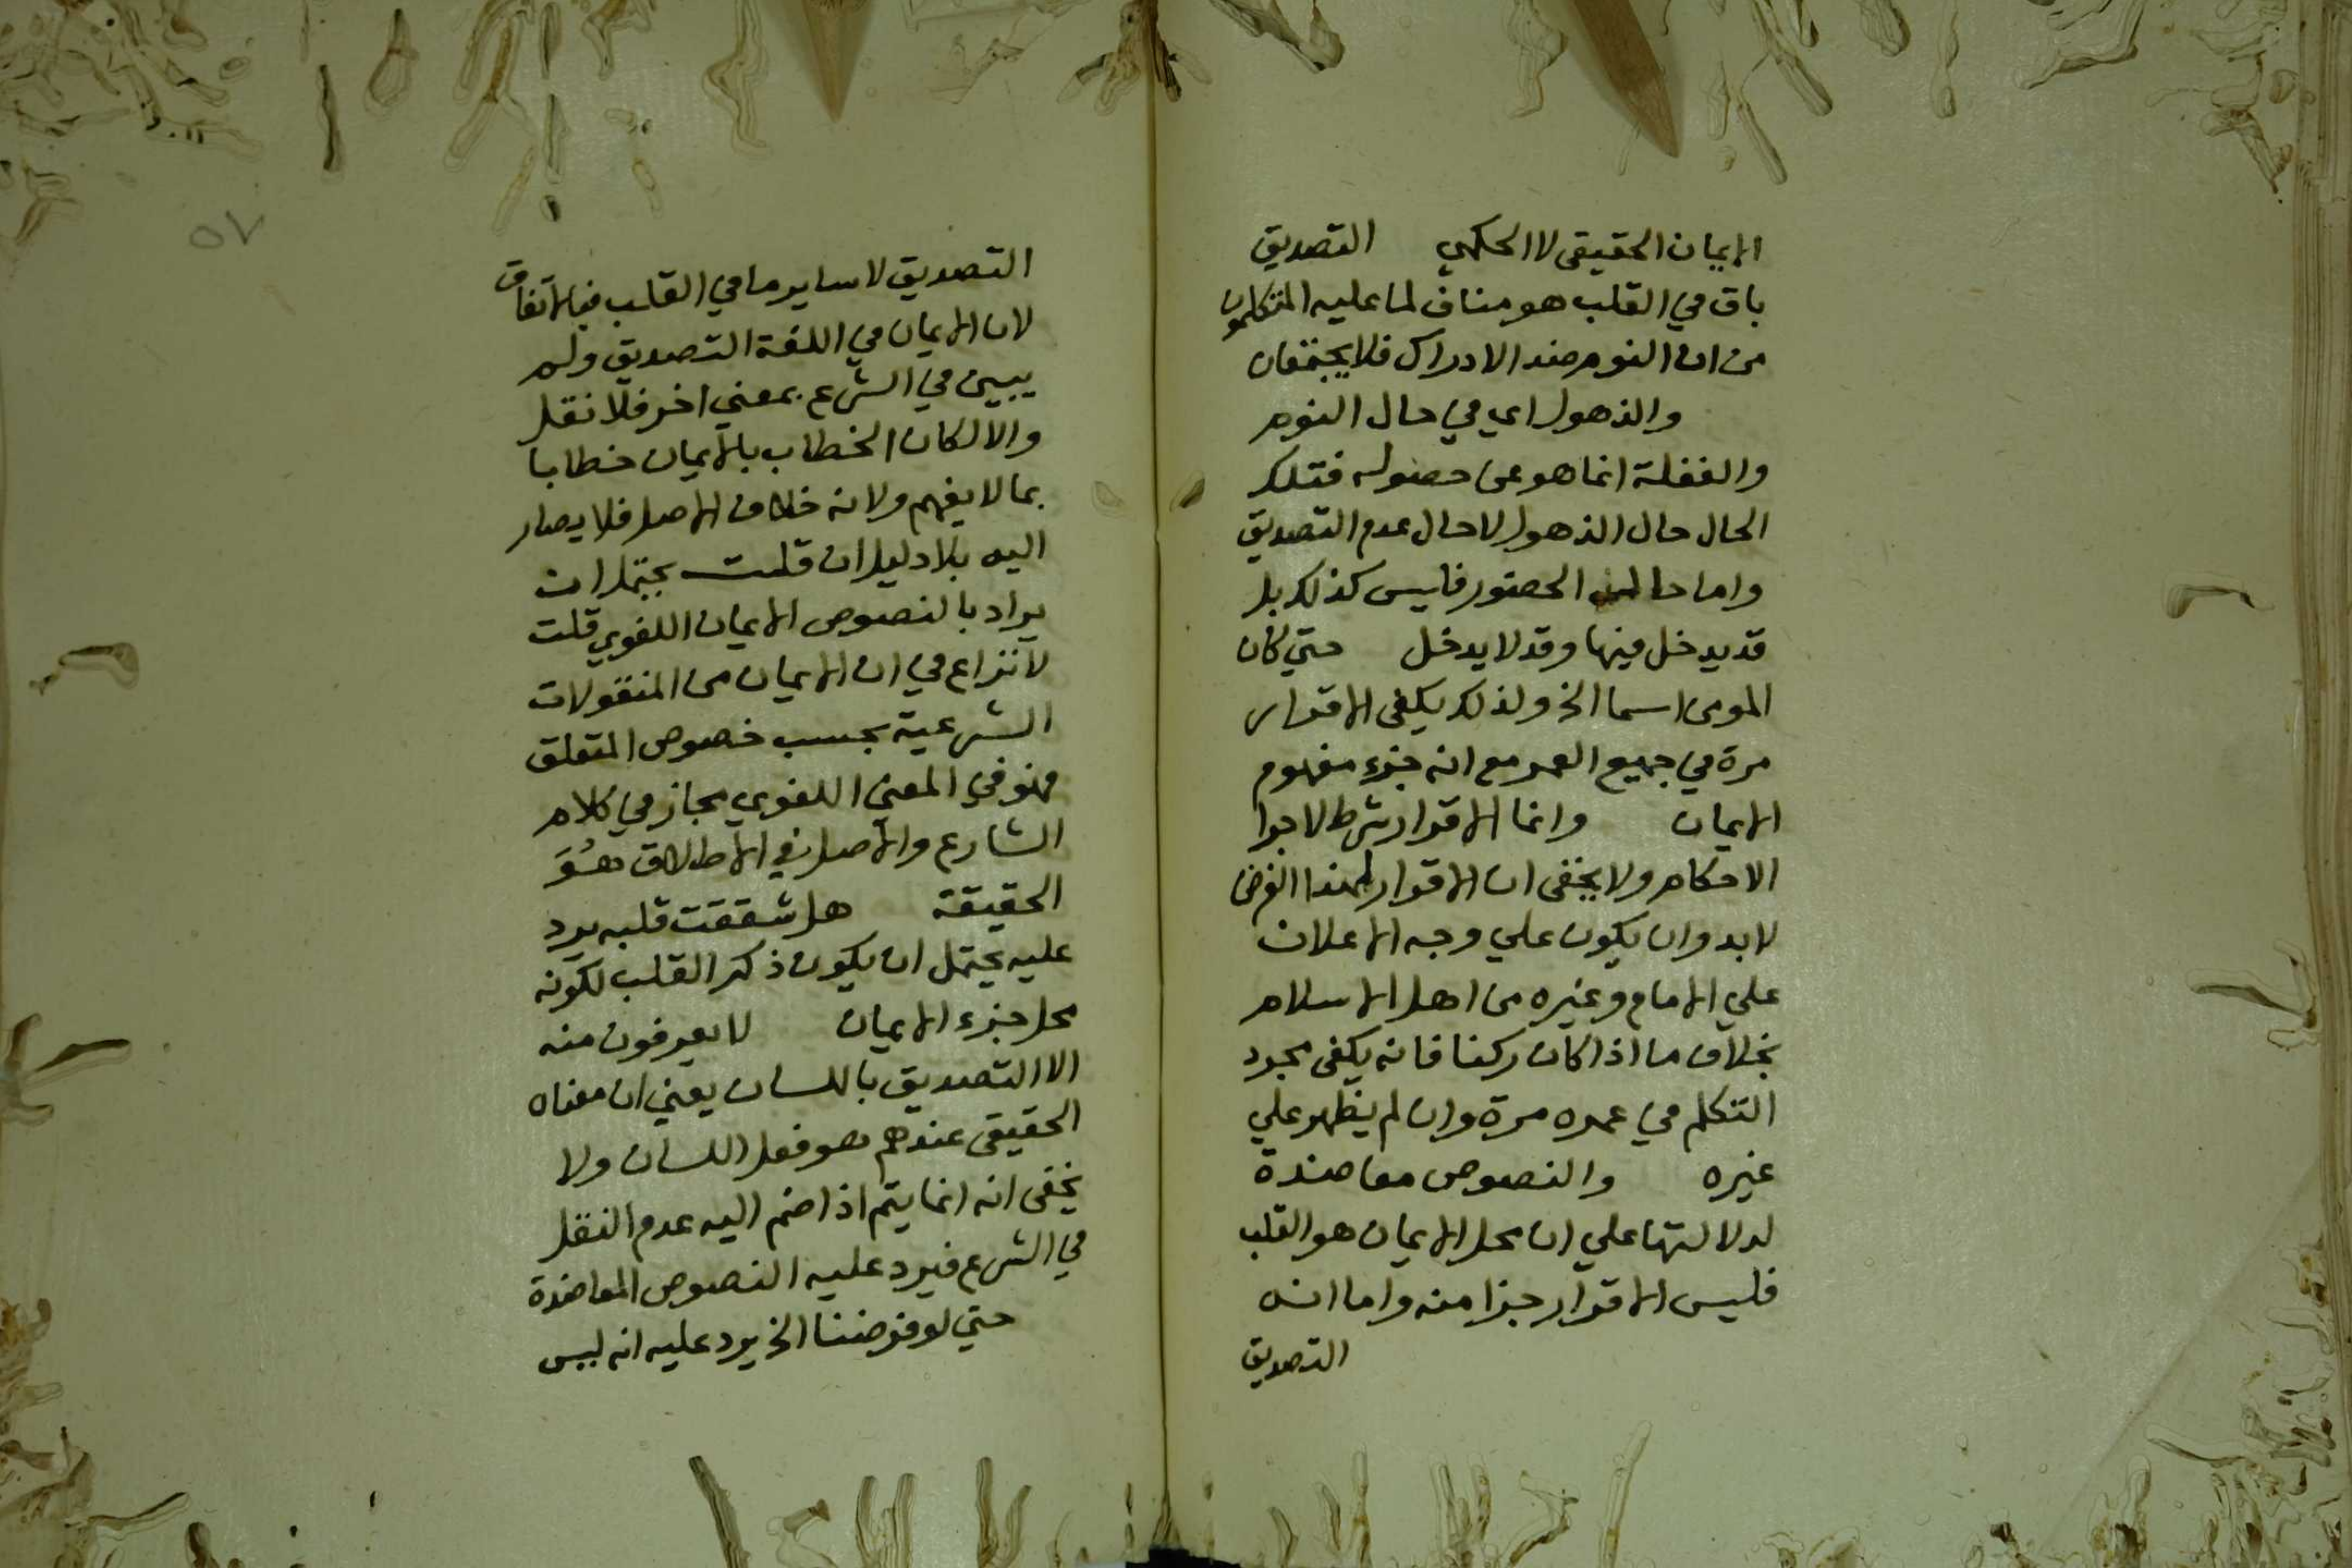 الايمان الحقيقى لا الحكمي التصديق
باق في القلب هو مناف لما عليه المتكلمون
من ان النوم ضد الادراك فلا يجتمعان
والذهول اي في حال النوم
والغفلة انما هو عن حصوله فتلك
الحال حال الذهول لا حال عدم التصديق
واما حال الحضور فليس كذلك بل
قد يدخل فيها وقد لا يدخل حتي كان
المومن اسما الخ ولذلك يكفى الاقرار
مرة في جميع العمر مع انه جزء مفهوم
الايمان وانما الاقرار شرط لاجرا
الاحكام ولا يخفى ان الاقرار لهذا الغرض
لا بد وان يكون علي وجه الاعلان
علي الامام وغيره من اهل الاسلام
بخلاف ما اذا كان ركنا فانه يكفى مجرد
التكلم في عمره مرة وان لم يظهر علي
غيره والنصوص معاضدة
لدلالتها علي ان محل الايمان هو القلب
فليس الاقرار جزا منه واما انه
التصديق
٥٧
التصديق لا ساير ما في القلب فبالاتفاق
لان الايمان في اللغة التصديق ولم
يبين في الشرع بمعني اخر فلا نقل
والا لكان الخطاب بالايمان خطابا
بما لا يفهم ولانه خلاف الاصل فلا يصار
اليه بلا دليل ان قلت يحتمل ان
يراد بالنصوص الايمان اللغوي قلت
لا نزاع في ان الايمان من المنقولات
الشرعية بحسب خصوص المتعلق
فهو في المعني اللغوي مجاز في كلام
الشارع والاصل في الاطلاق هُوَ
الحقيقة هل شققت قلبه يرد
عليه يحتمل ان يكون ذكر القلب لكونه
محل جزء الايمان لا يعرفون منه
الا التصديق باللسان يعني ان معناه
الحقيقى عندهم هو فعل اللسان ولا
يخفى انه انما يتم اذا ضم اليه عدم النقل
في الشرع فيرد عليه النصوص المعاضدة
حتي لو فرضنا الخ يرد عليه انه ليس